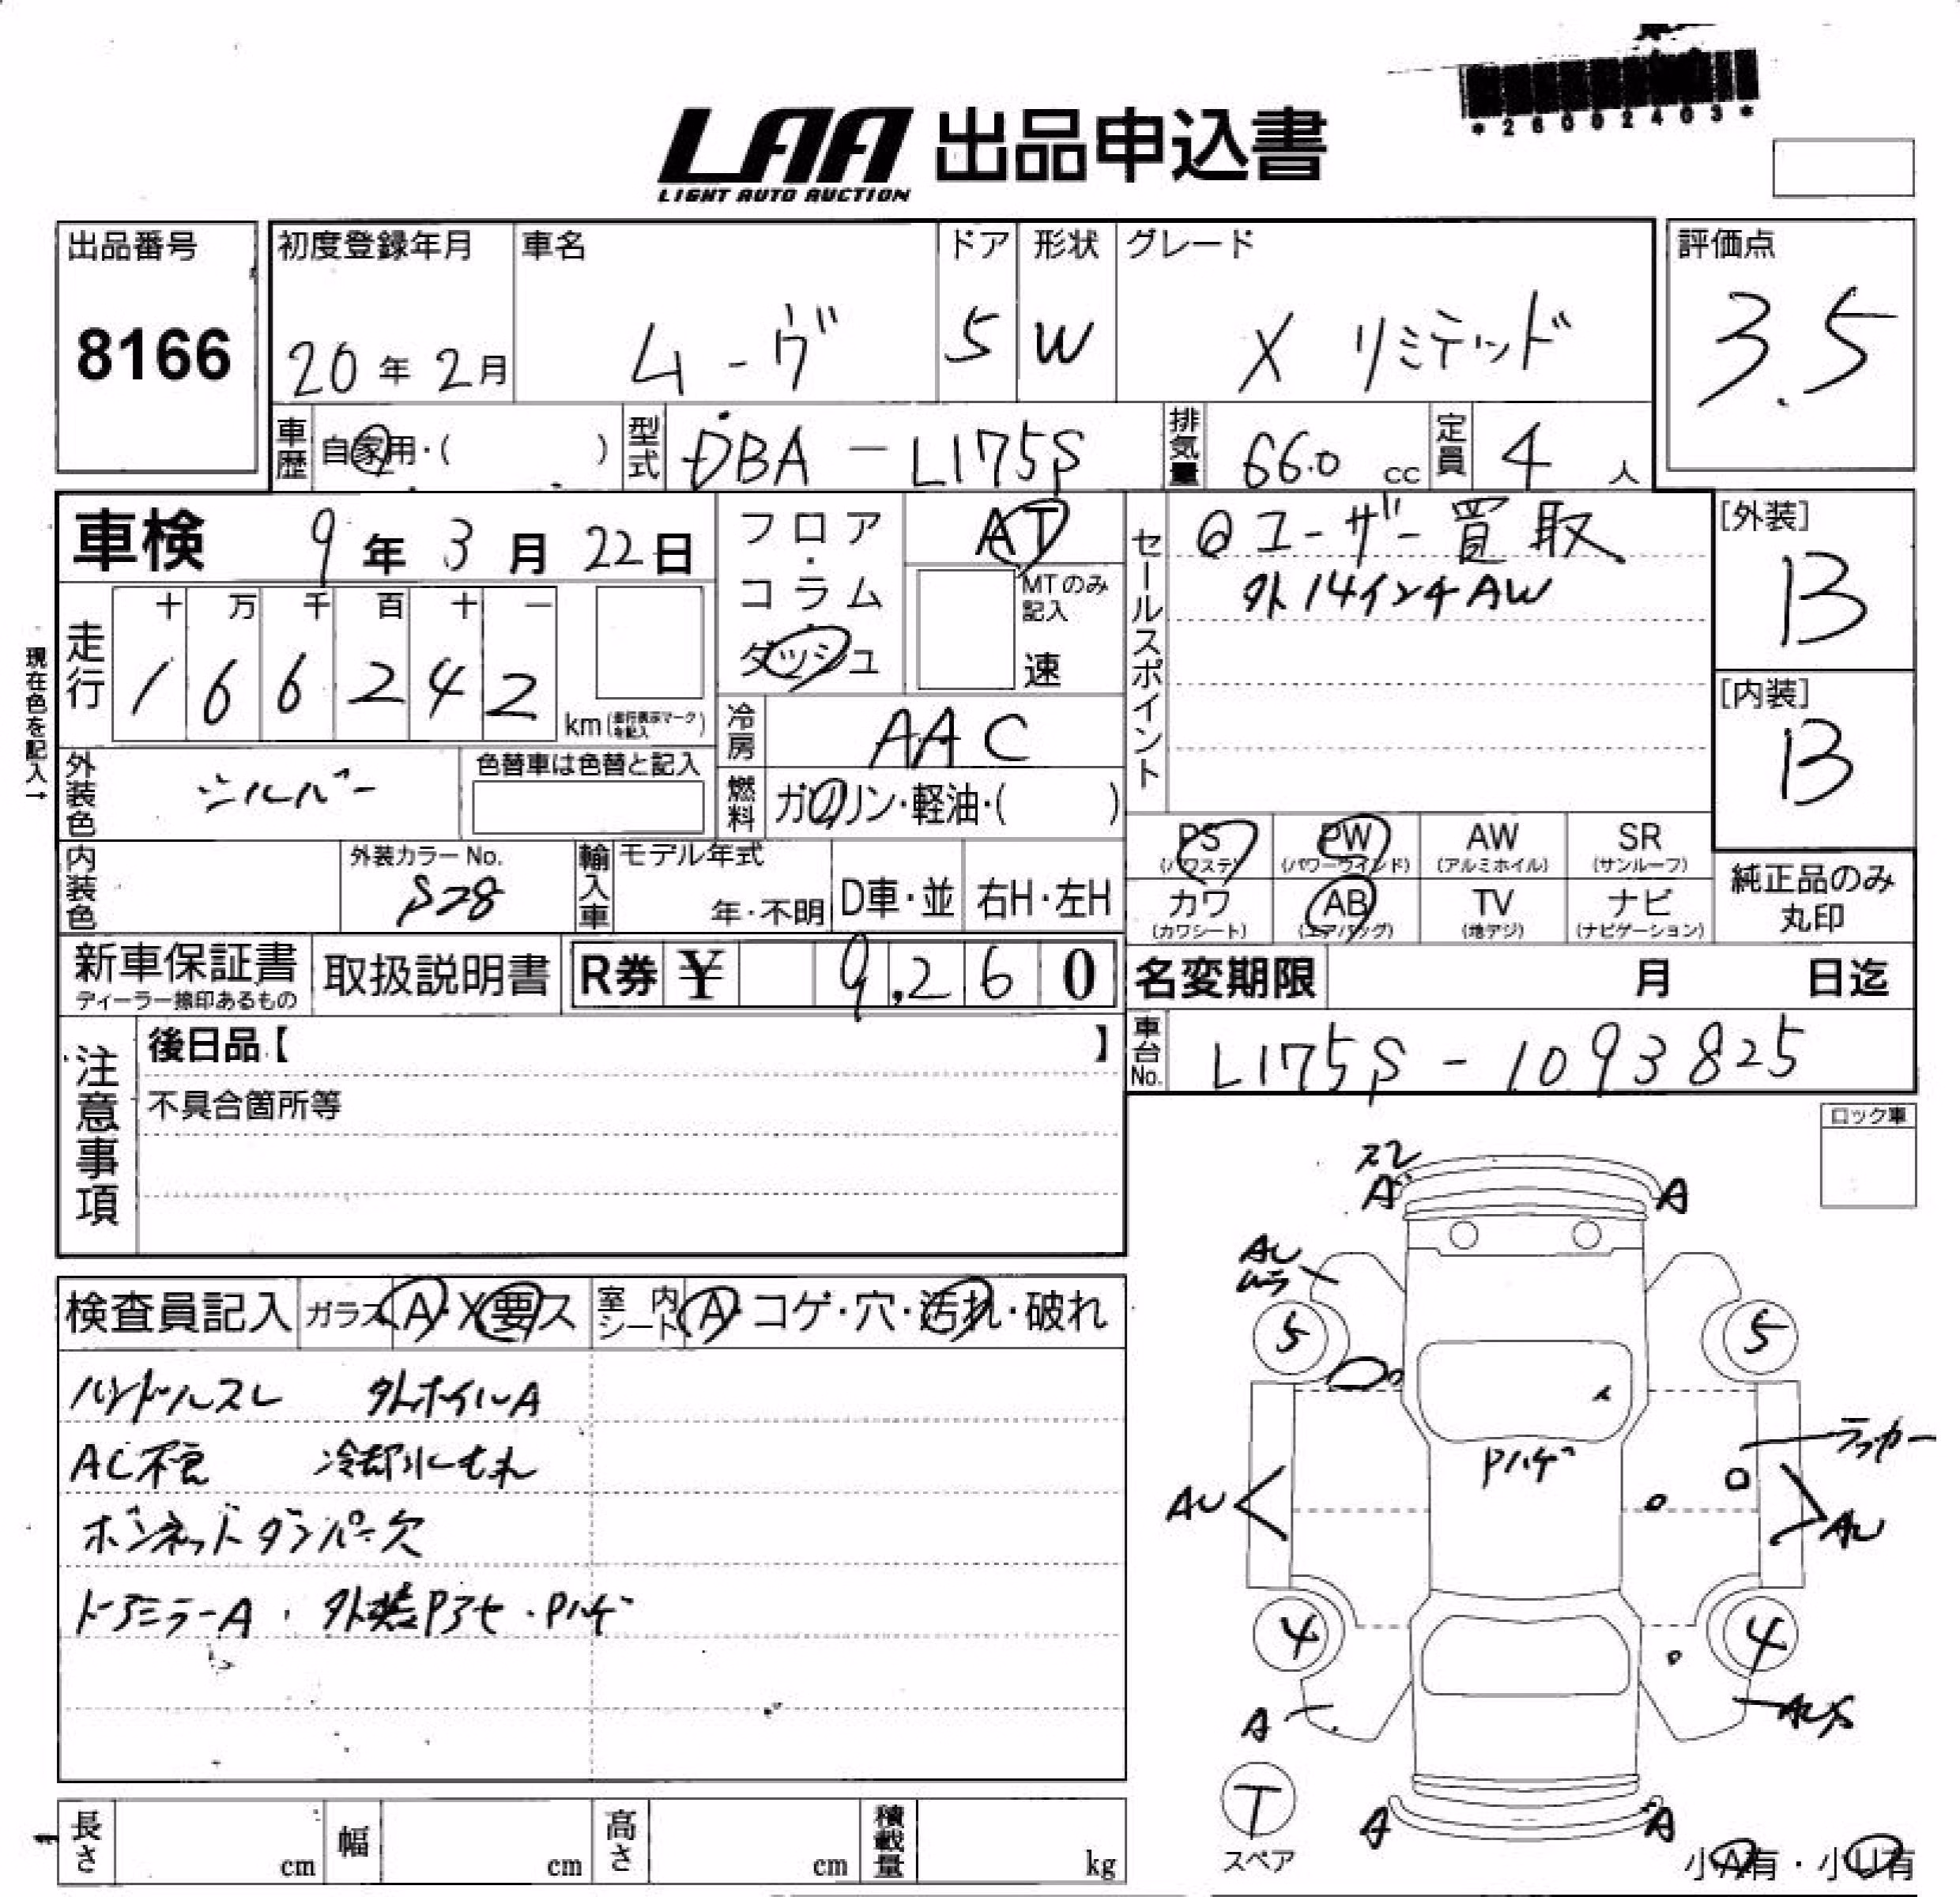 *26002403*
LAA 出品申込書
LIGHT AUTO AUCTION
出品番号
8166
初度登録年月
20年2月
車名
ムーヴ
ドア
5
形状
W
グレード
X リミテッド
評価点
3.5
車歴
自家用・( )
型式
DBA-L175S
排気量
660 cc
定員
4人
車検 9年3月22日
フロア・コラム・ダッシュ
AT
MTのみ記入
速
セールスポイント
ユーザー買取
外14インチAW
[外装]
B
[内装]
B
現在色を記入→
走行
十 万 千 百 十 一
1 6 6 2 4 2
km(走行表示マークを記入)
冷房
AAC
燃料
ガソリン・軽油・( )
外装色
シルバー
色替車は色替と記入
内装色
外装カラーNo.
S28
輸入車
モデル年式
年・不明
D車・並
右H・左H
PS
(パワステ)
PW
(パワーウインド)
AW
(アルミホイル)
SR
(サンルーフ)
カワ
(カワシート)
AB
(エアバッグ)
TV
(地デジ)
ナビ
(ナビゲーション)
純正品のみ
丸印
新車保証書
ディーラー捺印あるもの
取扱説明書
R券 ¥ 9,260
名変期限 月 日迄
車台No.
L175S-1093825
注意事項
後日品【 】
不具合箇所等
ロック車
検査員記入
ガラス A・X要ス
室内シート A・コゲ・穴・汚れ・破れ
ハンドルスレ 外ホイルA
AC不良 冷却水もれ
ボンネットダンパー欠
ドアミラーA・外装Pアセ・Pハゲ
スレ
A
A
AU
ムラ
5
5
Pハゲ
ラッカー
AU
AU
4
4
A
T
スペア
A
A
小A有・小U有
長さ
cm
幅
cm
高さ
cm
積載量
kg